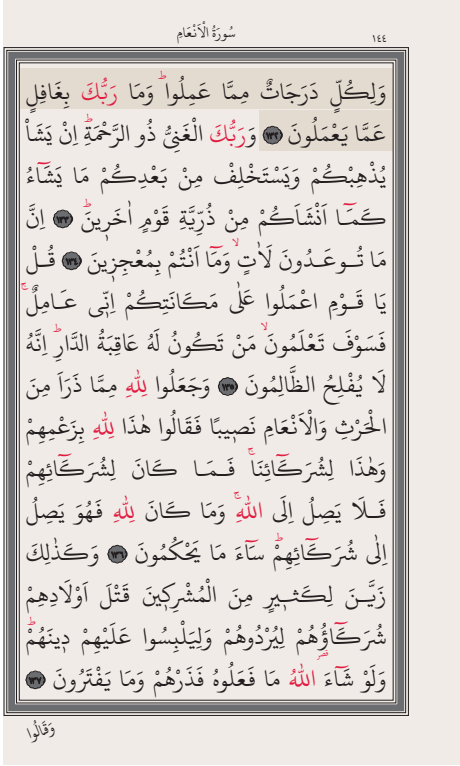 سُورَةُ الْاَنْعَامِ
١٤٤
وَلِكُلٍّ دَرَجَاتٌ مِمَّا عَمِلُواۜ وَمَا رَبُّكَ بِغَافِلٍ
عَمَّا يَعْمَلُونَ ﴿١٣٢﴾ وَرَبُّكَ الْغَنِيُّ ذُو الرَّحْمَةِۜ اِنْ يَشَأْ
يُذْهِبْكُمْ وَيَسْتَخْلِفْ مِنْ بَعْدِكُمْ مَا يَشَٓاءُ
كَمَٓا اَنْشَاَكُمْ مِنْ ذُرِّيَّةِ قَوْمٍ اٰخَر۪ينَۜ ﴿١٣٣﴾ اِنَّ
مَا تُوعَدُونَ لَاٰتٍۙ وَمَٓا اَنْتُمْ بِمُعْجِز۪ينَ ﴿١٣٤﴾ قُلْ
يَا قَوْمِ اعْمَلُوا عَلٰى مَكَانَتِكُمْ اِنّ۪ي عَامِلٌۚ
فَسَوْفَ تَعْلَمُونَۙ مَنْ تَكُونُ لَهُ عَاقِبَةُ الدَّارِۜ اِنَّهُ
لَا يُفْلِحُ الظَّالِمُونَ ﴿١٣٥﴾ وَجَعَلُوا لِلّٰهِ مِمَّا ذَرَاَ مِنَ
الْحَرْثِ وَالْاَنْعَامِ نَص۪يبًا فَقَالُوا هٰذَا لِلّٰهِ بِزَعْمِهِمْ
وَهٰذَا لِشُرَكَٓائِنَاۚ فَمَا كَانَ لِشُرَكَٓائِهِمْ
فَلَا يَصِلُ اِلَى اللّٰهِۚ وَمَا كَانَ لِلّٰهِ فَهُوَ يَصِلُ
اِلٰى شُرَكَٓائِهِمْۜ سَٓاءَ مَا يَحْكُمُونَ ﴿١٣٦﴾ وَكَذٰلِكَ
زَيَّنَ لِكَث۪يرٍ مِنَ الْمُشْرِك۪ينَ قَتْلَ اَوْلَادِهِمْ
شُرَكَٓاؤُ۬هُمْ لِيُرْدُوهُمْ وَلِيَلْبِسُوا عَلَيْهِمْ د۪ينَهُمْۜ
وَلَوْ شَٓاءَ اللّٰهُ مَا فَعَلُوهُ فَذَرْهُمْ وَمَا يَفْتَرُونَ ﴿١٣٧﴾
وَقَالُوا